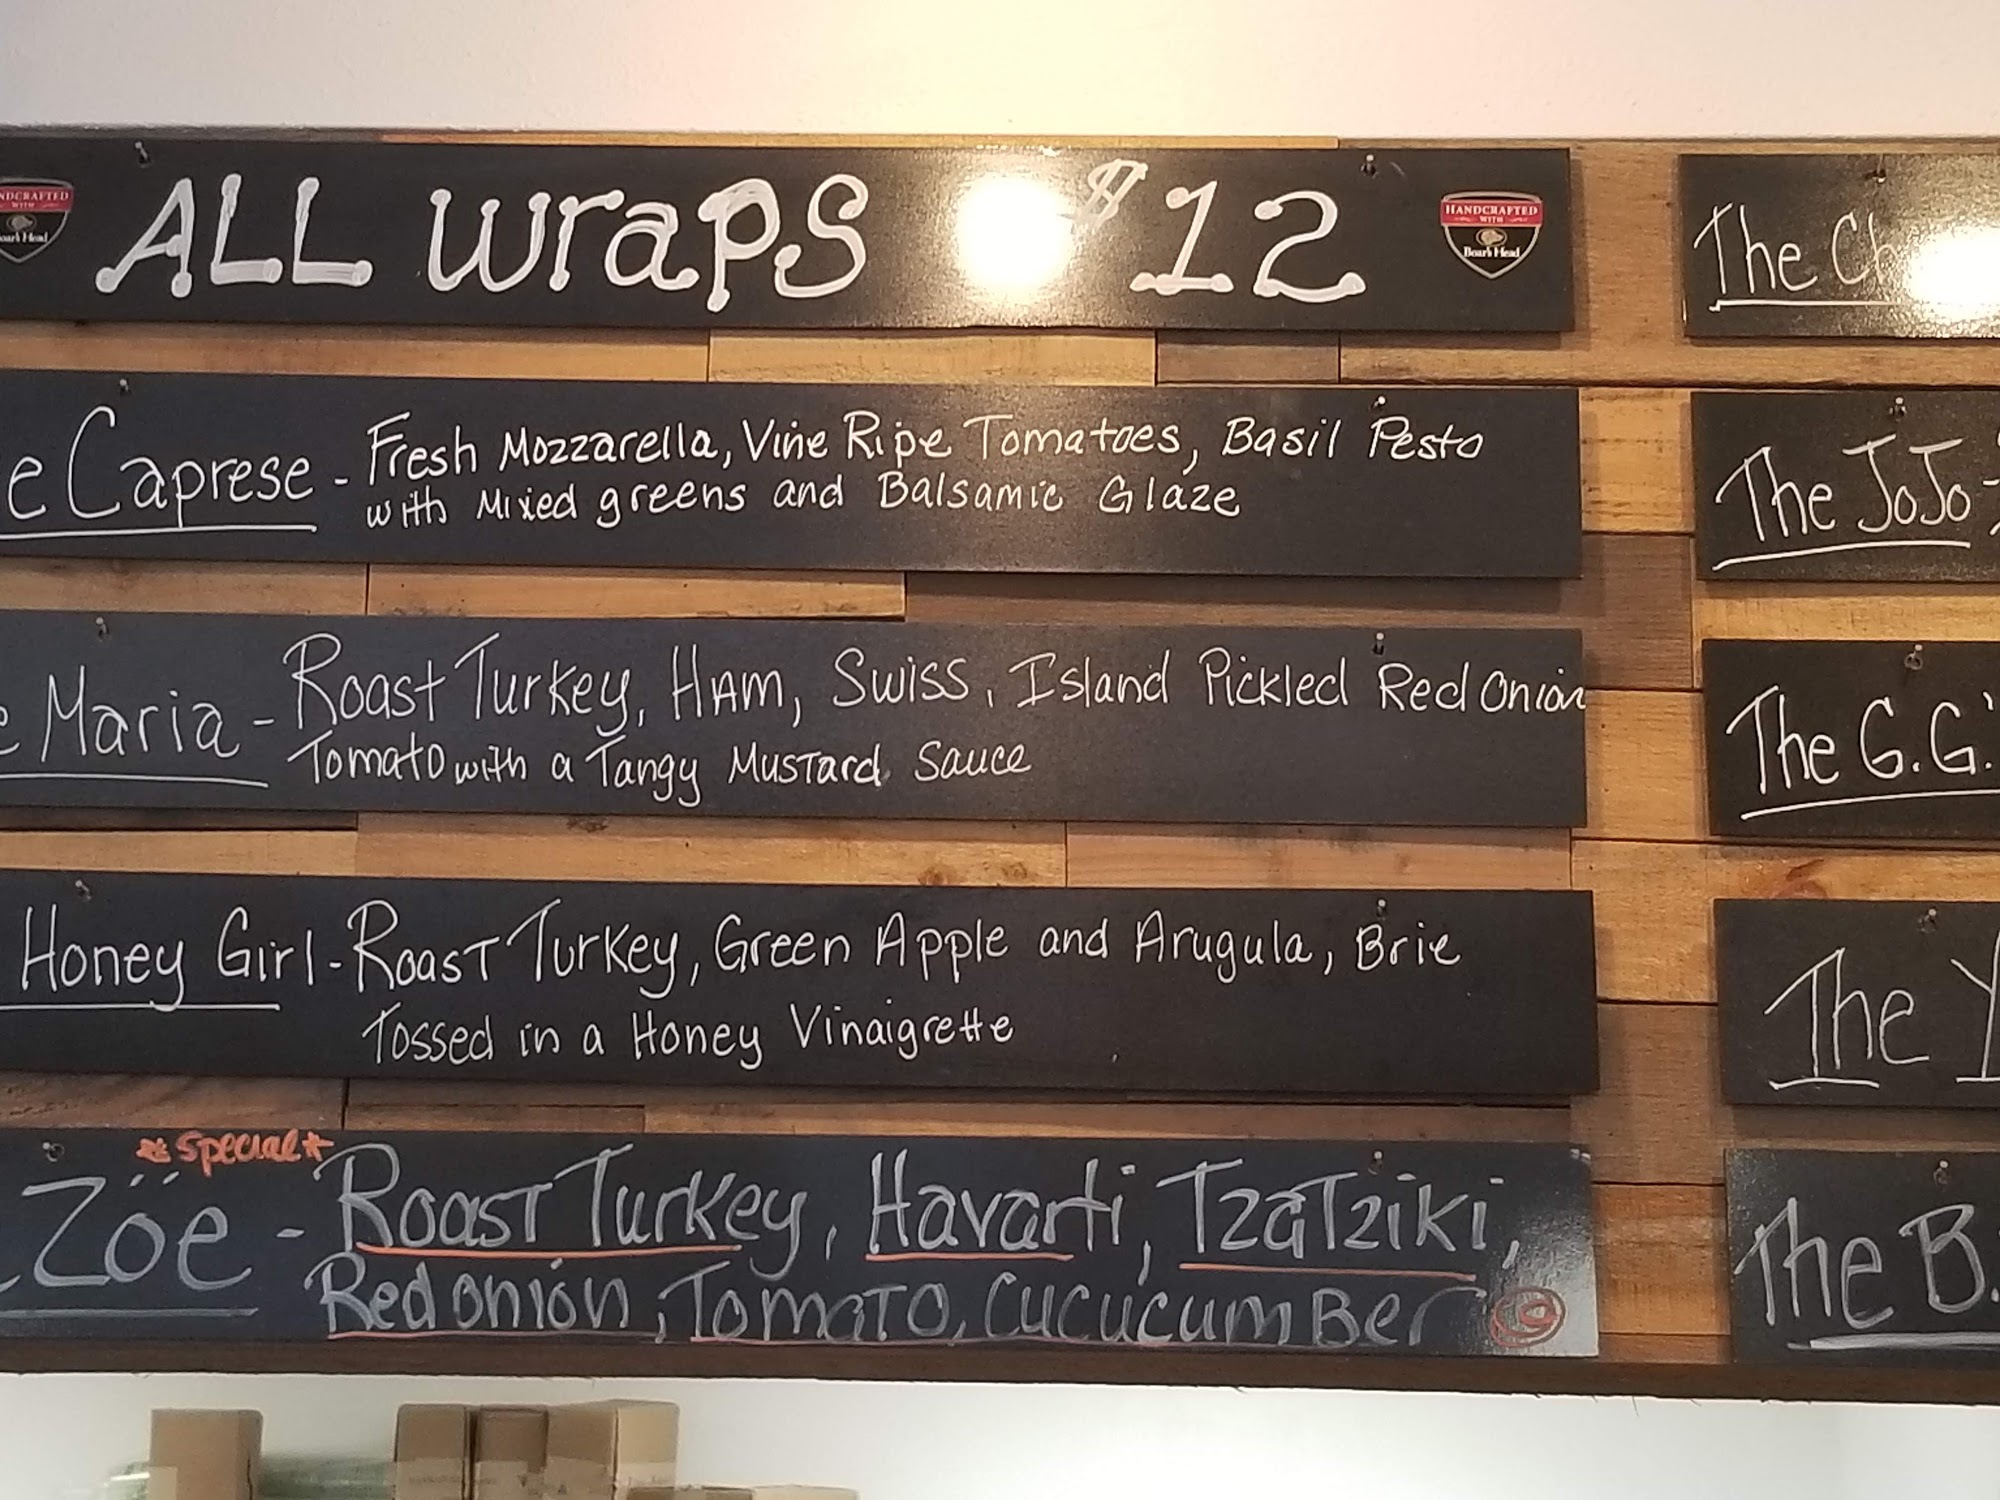 ALL wraps $12
HANDCRAFTED
WITH
Boar's Head
Caprese - Fresh Mozzarella, Vine Ripe Tomatoes, Basil Pesto
with Mixed greens and Balsamic Glaze
Maria - Roast Turkey, Ham, Swiss, Island Pickled Red Onion
Tomato with a Tangy Mustard Sauce
Honey Girl - Roast Turkey, Green Apple and Arugula, Brie
Tossed in a Honey Vinaigrette
*Special*
Zöe - Roast Turkey, Havarti, Tzatziki,
Red onion, Tomato, Cucucumber
The
The JoJo -
The G.G.'
The Y
The B.